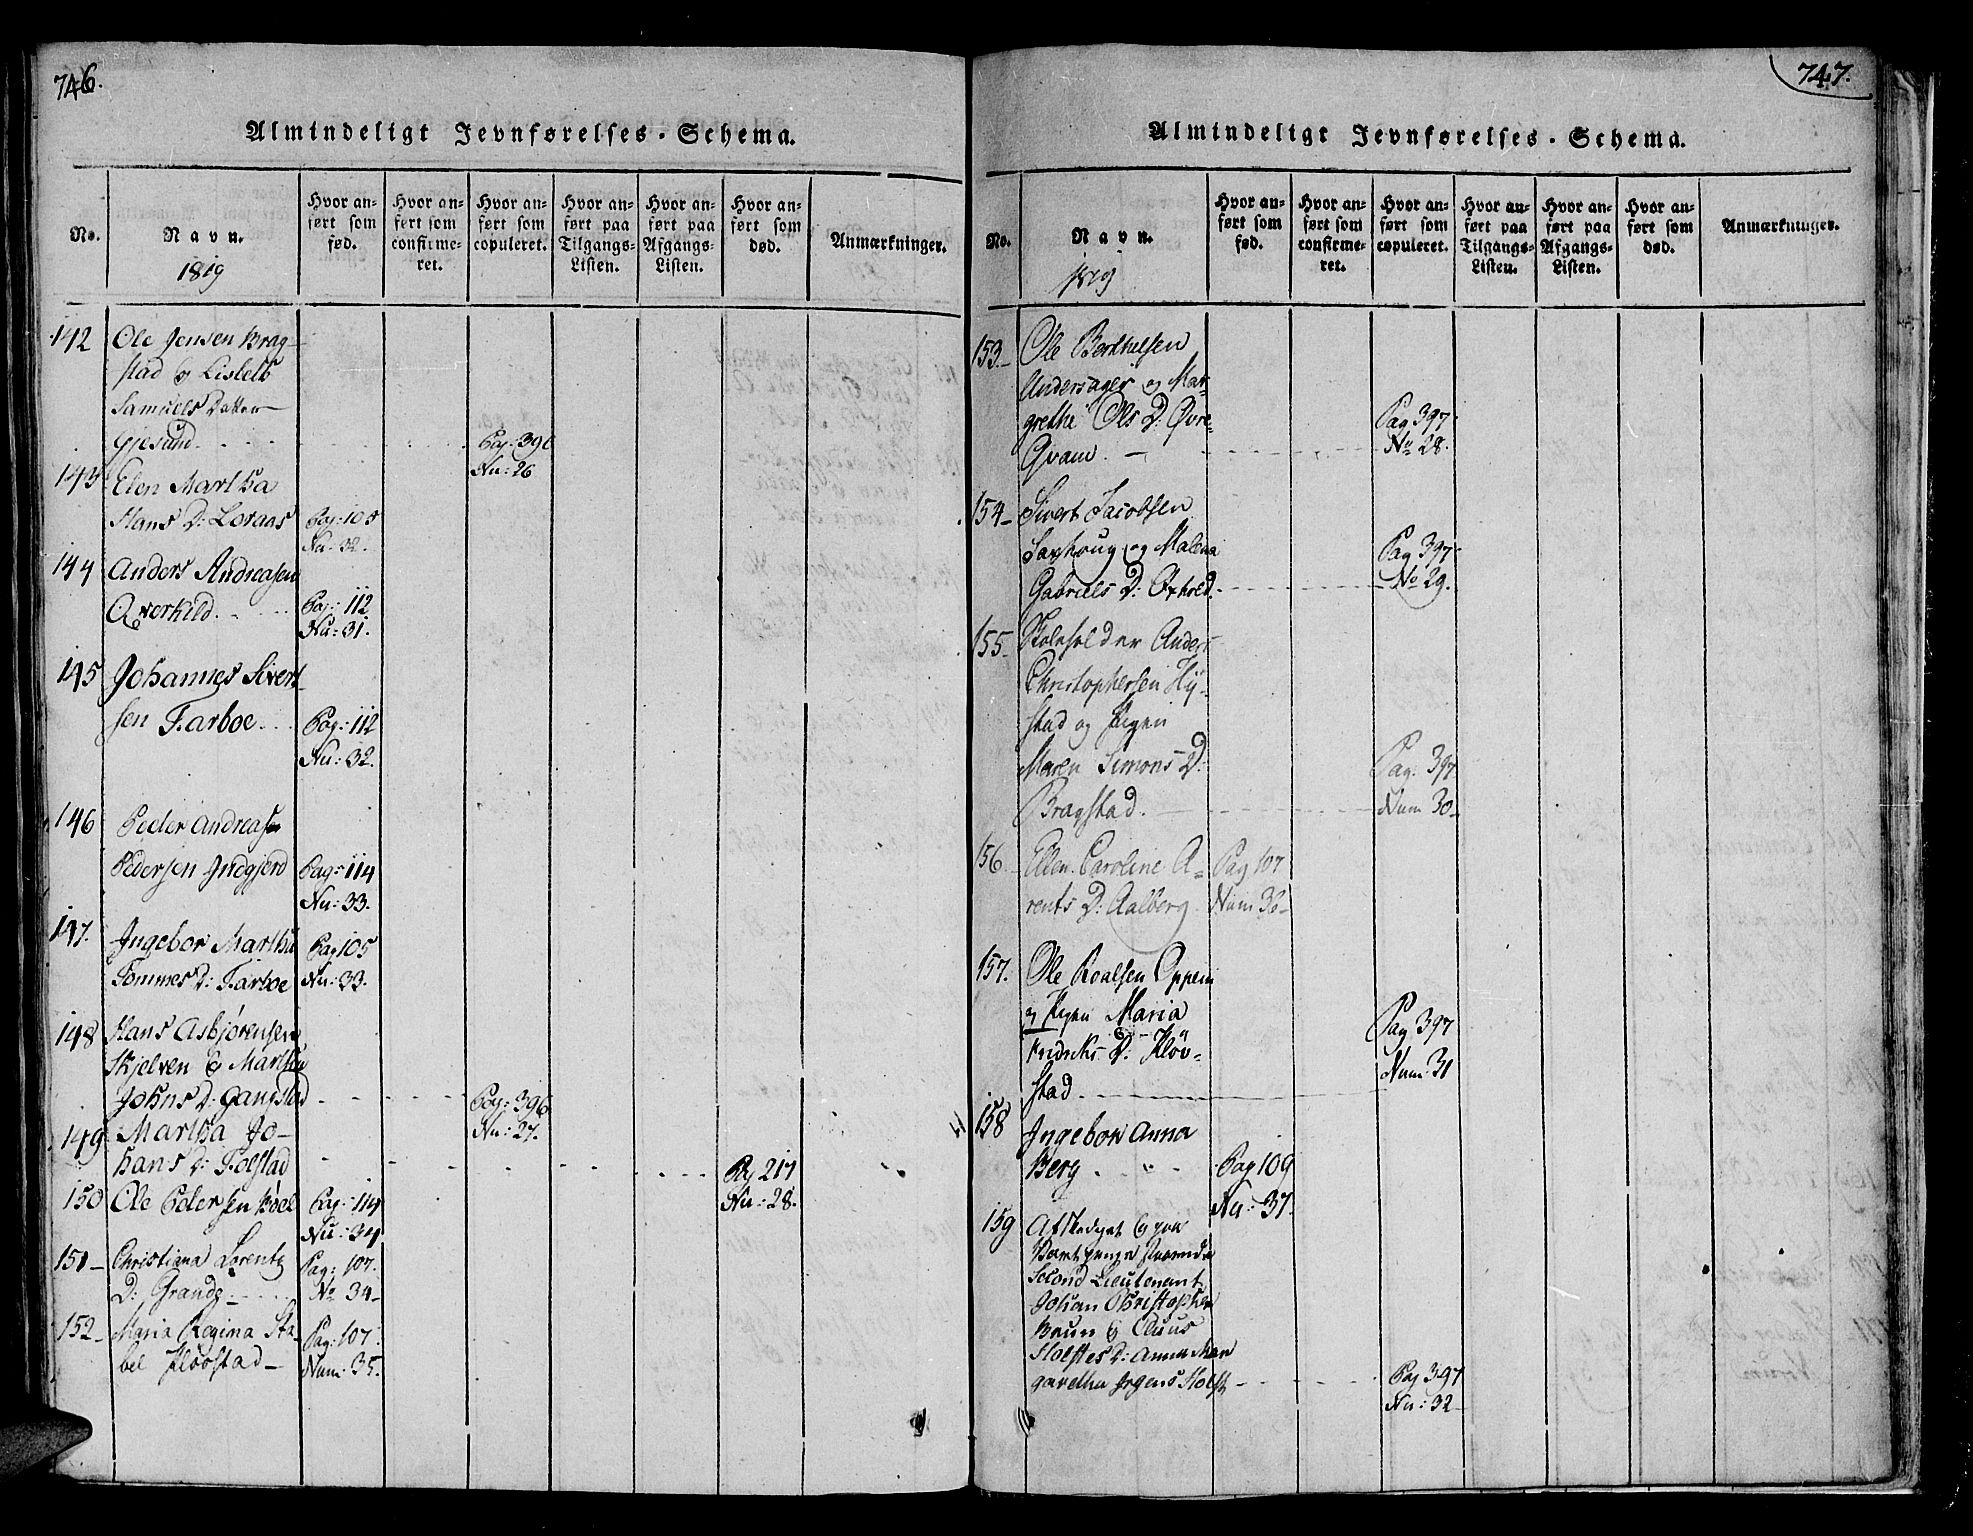 746.
Almindeligt Jevnførelses-Schema.
No.
Navn.
1819
Hvor an-
ført som
fød.
Hvor an-
ført som
confirme-
ret.
Hvor an-
ført som
copuleret.
Hvor an-
ført paa
Tilgangs-
Listen.
Hvor an-
ført paa
Afgangs-
Listen.
Hvor an-
ført som
død.
Anmærkninger.
142 Ole Jensen Brag-
stad & Lisbeth
Samuels Datter
Gjesund. Pag: 396
Nu: 26
143 Elen Martha
Hans D: Loraas Pag: 105
Nu: 32.
144 Anders Andreasen
Qverkild. Pag: 112
Nu: 31.
145 Johannes Sivert-
sen Farboe. Pag: 112
Nu: 32.
146 Peder Andreas
Pedersen Indgjerd Pag: 114
Nu: 33.
147. Ingebor Martha Pag 105
Tommes D: Farboe Nu: 33.
148 Hans Asbjørensen
Skjelven & Martha
Johns D: Gangstad Pag: 396
Nu: 27.
149 Martha Jo-
hans D: Folstad Pag 217
Nu: 28.
150 Ole Pedersen Böel Pag: 114
Nu: 34
151 Christiana Lorentz Pag: 107.
D: Grandg No 34
152 Maria Regina Sta- Pag: 107.
bel Kloostad Num: 35.
747.
Almindeligt Jevnførelses-Schema.
No.
Navn.
1819
Hvor an-
ført som
fød.
Hvor an-
ført som
confirme-
ret.
Hvor an-
ført som
copuleret.
Hvor an-
ført paa
Tilgangs-
Listen.
Hvor an-
ført paa
Afgangs-
Listen.
Hvor an-
ført som
død.
Anmærkninger.
153 Ole Berthelsen
Undersager og Mar-
grethe Ols D: Øvre- Pag 397
Qvam. No 28.
154 Sivert Jacobsen
Saxhoug og Malena Pag 397
Gabriels D: Oxhold. No 29.
155 Anders
Christophersen Hy-
stad og Pigen
Maren Simons D: Pag. 397
Bragstad. Num 30
156 Ellen Caroline A- Pag 107
rents D: Aalberg Num 36
157. Ole Roalsen Oppem
og Pigen Maria Pag 397
D: Klöv- Num. 31
stad
158 Ingebor Anna
Berg Pag 109
Nu: 37.
159 Afskediget
Second Lieutenant
Johan Christopher
Bruun & Cluus
Holstes D: Anna Mar
garetha Irgens Holst Pag 397
Nu: 32